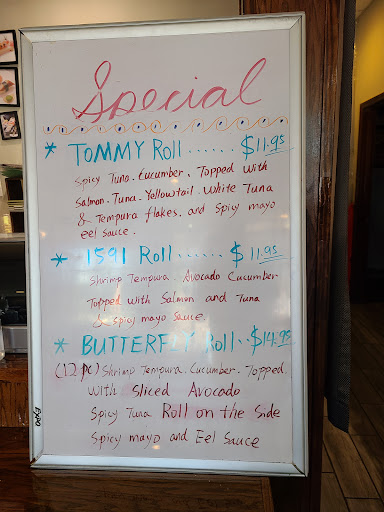 Special
* TOMMY Roll ...... $11.95
Spicy Tuna. Cucumber. Topped with
Salmon. Tuna. Yellowtail. White Tuna
& Tempura flakes. and Spicy mayo
eel sauce.
* 1591 Roll ....... $11.95
Shrimp Tempura. Avocado Cucumber
Topped with Salmon and Tuna
& Spicy mayo Sauce.
* BUTTERFLY Roll.. $14.95
(12 pc) Shrimp Tempura. Cucumber. Topped.
with Sliced Avocado
Spicy Tuna Roll on the Side
Spicy mayo and Eel Sauce